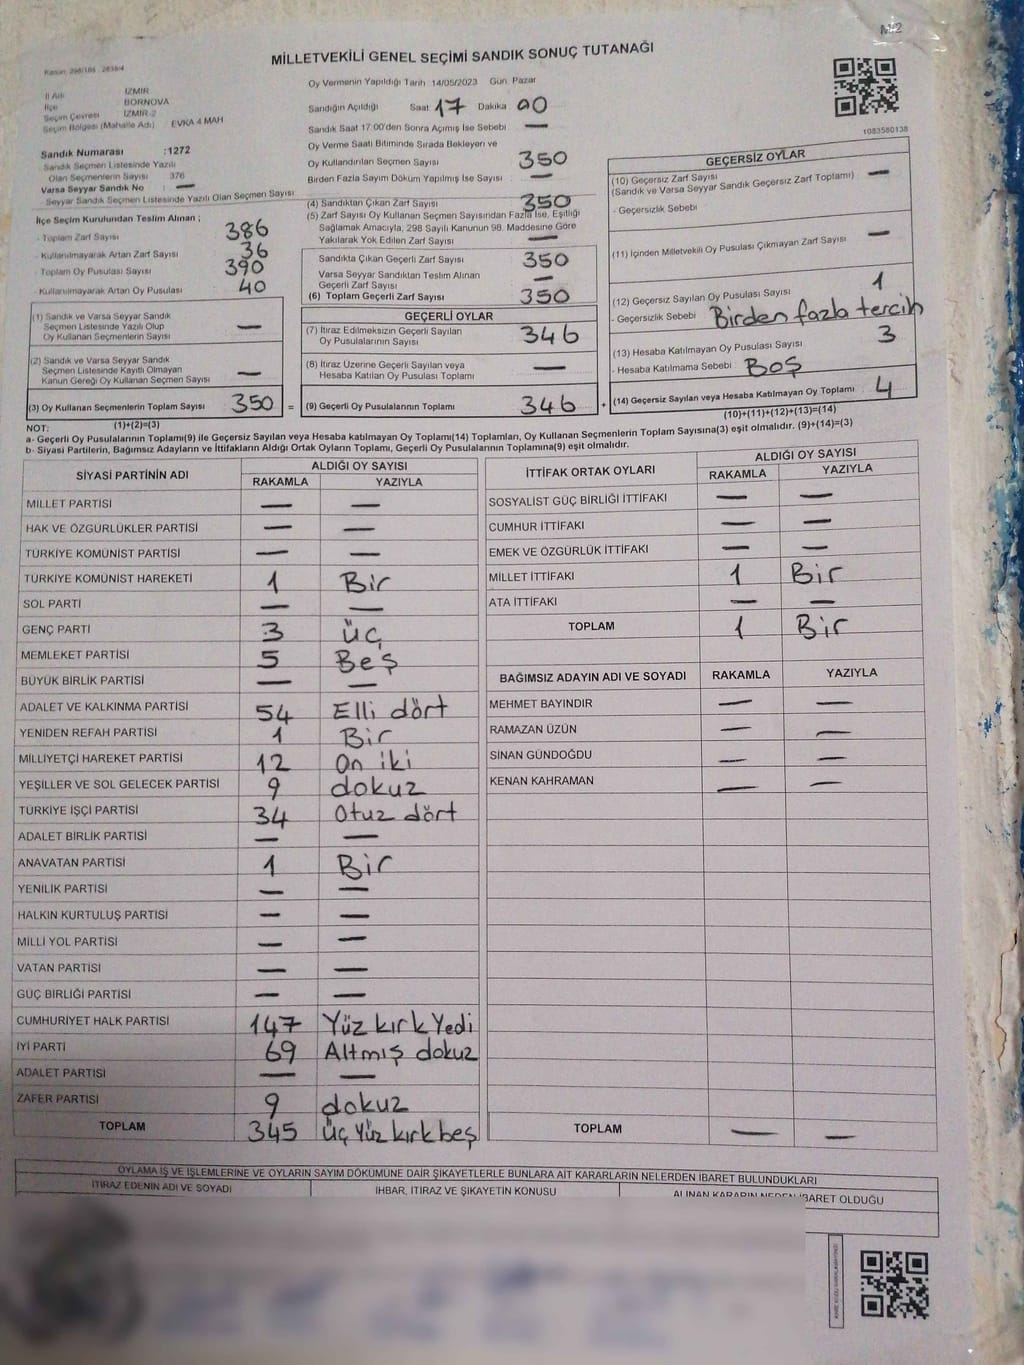 M-2
MİLLETVEKİLİ GENEL SEÇİMİ SANDIK SONUÇ TUTANAĞI
Oy Vermenin Yapıldığı Tarih 14/05/2023 Gün: Pazar
İl Adı İZMİR
İlçe BORNOVA
Seçim Çevresi İZMİR-2
Seçim Bölgesi (Mahalle Adı) EVKA 4 MAH
Sandık Numarası :1272
Sandık Seçmen Listesinde Yazılı
Olan Seçmenlerin Sayısı 376
Varsa Seyyar Sandık No —
Seyyar Sandık Seçmen Listesinde Yazılı Olan Seçmen Sayısı
Sandığın Açıldığı Saat 17 Dakika 00
Sandık Saat 17:00'den Sonra Açımış İse Sebebi —
Oy Verme Saati Bitiminde Sırada Bekleyen ve
Oy Kullandırılan Seçmen Sayısı 350
Birden Fazla Sayım Döküm Yapılmış İse Sayısı —
İlçe Seçim Kurulundan Teslim Alınan ;
- Toplam Zarf Sayısı 386
- Kullanılmayarak Artan Zarf Sayısı 36
- Toplam Oy Pusulası Sayısı 390
- Kullanılmayarak Artan Oy Pusulası 40
(1) Sandık ve Varsa Seyyar Sandık
Seçmen Listesinde Yazılı Olup
Oy Kullanan Seçmenlerin Sayısı —
(2) Sandık ve Varsa Seyyar Sandık
Seçmen Listesinde Kayıtlı Olmayan
Kanun Gereği Oy Kullanan Seçmen Sayısı —
(3) Oy Kullanan Seçmenlerin Toplam Sayısı 350 =
(4) Sandıktan Çıkan Zarf Sayısı 350
(5) Zarf Sayısı Oy Kullanan Seçmen Sayısından Fazla İse, Eşitliği
Sağlamak Amacıyla, 298 Sayılı Kanunun 98. Maddesine Göre
Yakılarak Yok Edilen Zarf Sayısı —
Sandıkta Çıkan Geçerli Zarf Sayısı 350
Varsa Seyyar Sandıktan Teslim Alınan
Geçerli Zarf Sayısı —
(6) Toplam Geçerli Zarf Sayısı 350
GEÇERLİ OYLAR
(7) İtiraz Edilmeksizin Geçerli Sayılan
Oy Pusulalarının Sayısı 346
(8) İtiraz Üzerine Geçerli Sayılan veya
Hesaba Katılan Oy Pusulası Toplamı —
(9) Geçerli Oy Pusulalarının Toplamı 346 +
1083580138
GEÇERSİZ OYLAR
(10) Geçersiz Zarf Sayısı
(Sandık ve Varsa Seyyar Sandık Geçersiz Zarf Toplamı) —
- Geçersizlik Sebebi
(11) İçinden Milletvekili Oy Pusulası Çıkmayan Zarf Sayısı —
(12) Geçersiz Sayılan Oy Pusulası Sayısı 1
- Geçersizlik Sebebi Birden fazla tercih
(13) Hesaba Katılmayan Oy Pusulası Sayısı 3
- Hesaba Katılmama Sebebi Boş
(14) Geçersiz Sayılan veya Hesaba Katılmayan Oy Toplamı 4
NOT: (1)+(2)=(3) (10)+(11)+(12)+(13)=(14)
a- Geçerli Oy Pusulalarının Toplamı(9) ile Geçersiz Sayılan veya Hesaba katılmayan Oy Toplamı(14) Toplamları, Oy Kullanan Seçmenlerin Toplam Sayısına(3) eşit olmalıdır. (9)+(14)=(3)
b- Siyasi Partilerin, Bağımsız Adayların ve İttifakların Aldığı Ortak Oyların Toplamı, Geçerli Oy Pusulalarının Toplamına(9) eşit olmalıdır.
SİYASİ PARTİNİN ADI ALDIĞI OY SAYISI
RAKAMLA YAZIYLA
MİLLET PARTİSİ — —
HAK VE ÖZGÜRLÜKLER PARTİSİ — —
TÜRKİYE KOMÜNİST PARTİSİ — —
TÜRKİYE KOMÜNİST HAREKETİ 1 Bir
SOL PARTİ — —
GENÇ PARTİ 3 üç
MEMLEKET PARTİSİ 5 Beş
BÜYÜK BİRLİK PARTİSİ — —
ADALET VE KALKINMA PARTİSİ 54 Elli dört
YENİDEN REFAH PARTİSİ 1 Bir
MİLLİYETÇİ HAREKET PARTİSİ 12 On iki
YEŞİLLER VE SOL GELECEK PARTİSİ 9 dokuz
TÜRKİYE İŞÇİ PARTİSİ 34 Otuz dört
ADALET BİRLİK PARTİSİ — —
ANAVATAN PARTİSİ 1 Bir
YENİLİK PARTİSİ — —
HALKIN KURTULUŞ PARTİSİ — —
MİLLİ YOL PARTİSİ — —
VATAN PARTİSİ — —
GÜÇ BİRLİĞİ PARTİSİ — —
CUMHURİYET HALK PARTİSİ 147 Yüz kırk Yedi
İYİ PARTİ 69 Altmış dokuz
ADALET PARTİSİ — —
ZAFER PARTİSİ 9 dokuz
TOPLAM 345 üç Yüz kırk beş
İTTİFAK ORTAK OYLARI ALDIĞI OY SAYISI
RAKAMLA YAZIYLA
SOSYALİST GÜÇ BİRLİĞİ İTTİFAKI — —
CUMHUR İTTİFAKI — —
EMEK VE ÖZGÜRLÜK İTTİFAKI — —
MİLLET İTTİFAKI 1 Bir
ATA İTTİFAKI — —
TOPLAM 1 Bir
BAĞIMSIZ ADAYIN ADI VE SOYADI RAKAMLA YAZIYLA
MEHMET BAYINDIR — —
RAMAZAN ÜZÜN — —
SİNAN GÜNDOĞDU — —
KENAN KAHRAMAN — —
TOPLAM — —
OYLAMA İŞ VE İŞLEMLERİNE VE OYLARIN SAYIM DÖKÜMÜNE DAİR ŞİKAYETLERLE BUNLARA AİT KARARLARIN NELERDEN İBARET BULUNDUKLARI
İTİRAZ EDENİN ADI VE SOYADI İHBAR, İTİRAZ VE ŞİKAYETİN KONUSU ALINAN KARARIN NEDEN İBARET OLDUĞU